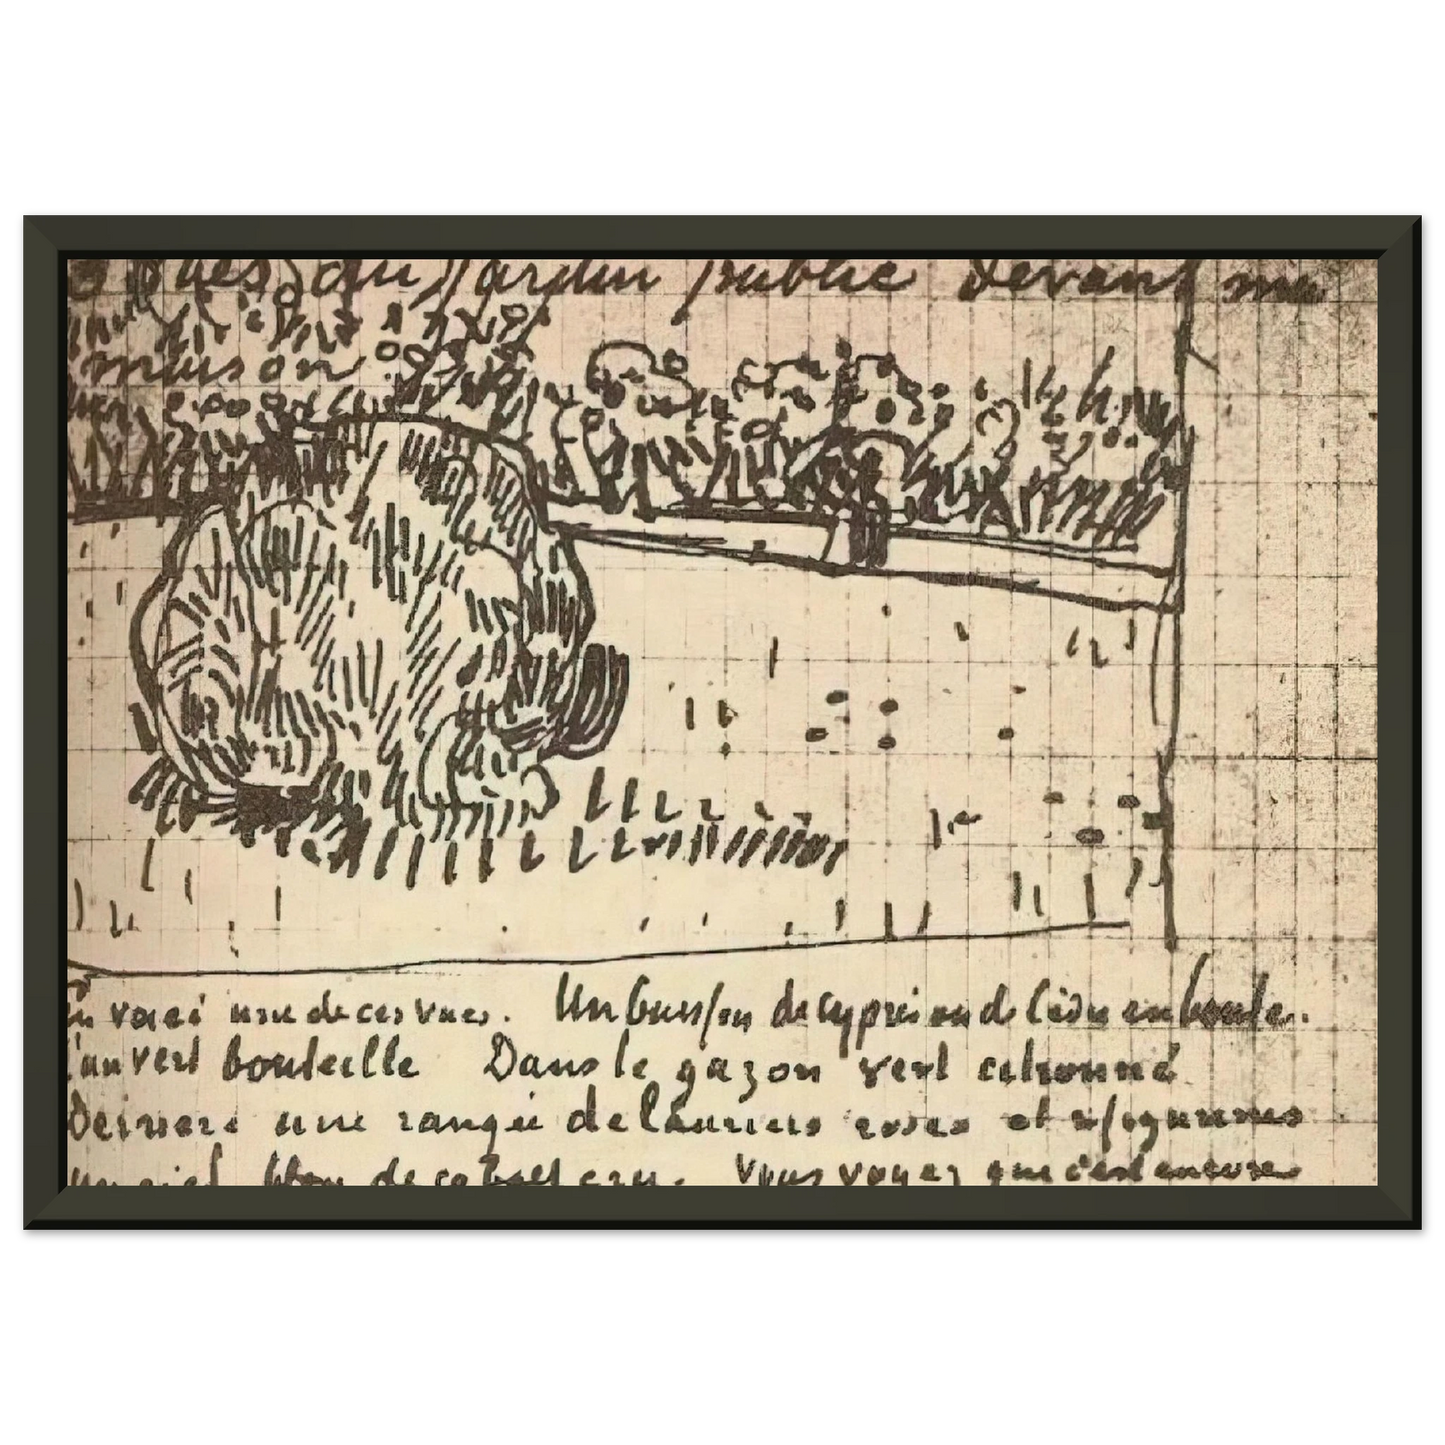 vues du Jardin public devant ma
maison
voici une de ces vues. Un buisson de cyprès ou de cèdre en boule.
vert bouteille Dans le gazon vert citronné
Derriere une rangée de lauriers roses et
un ciel bleu de cobalt cru. Vous voyez que c'est encore